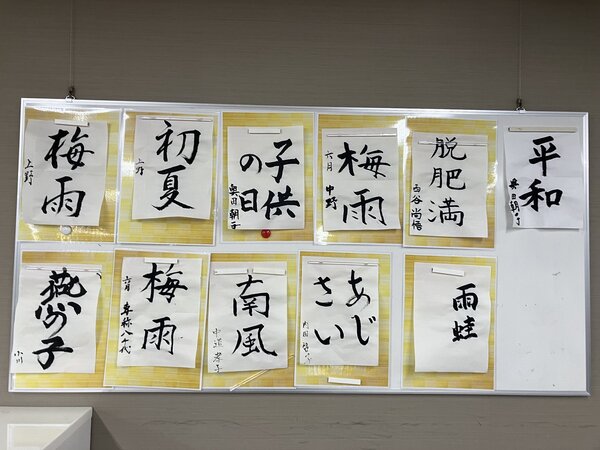 梅雨
上野
初夏
子供
の日
奥田朝子
梅雨
六月 中野
脱肥満
西谷尚悟
平和
奥田朝子
小川
梅雨
六月
八千代
南風
あじ
さい
内田
雨蛙